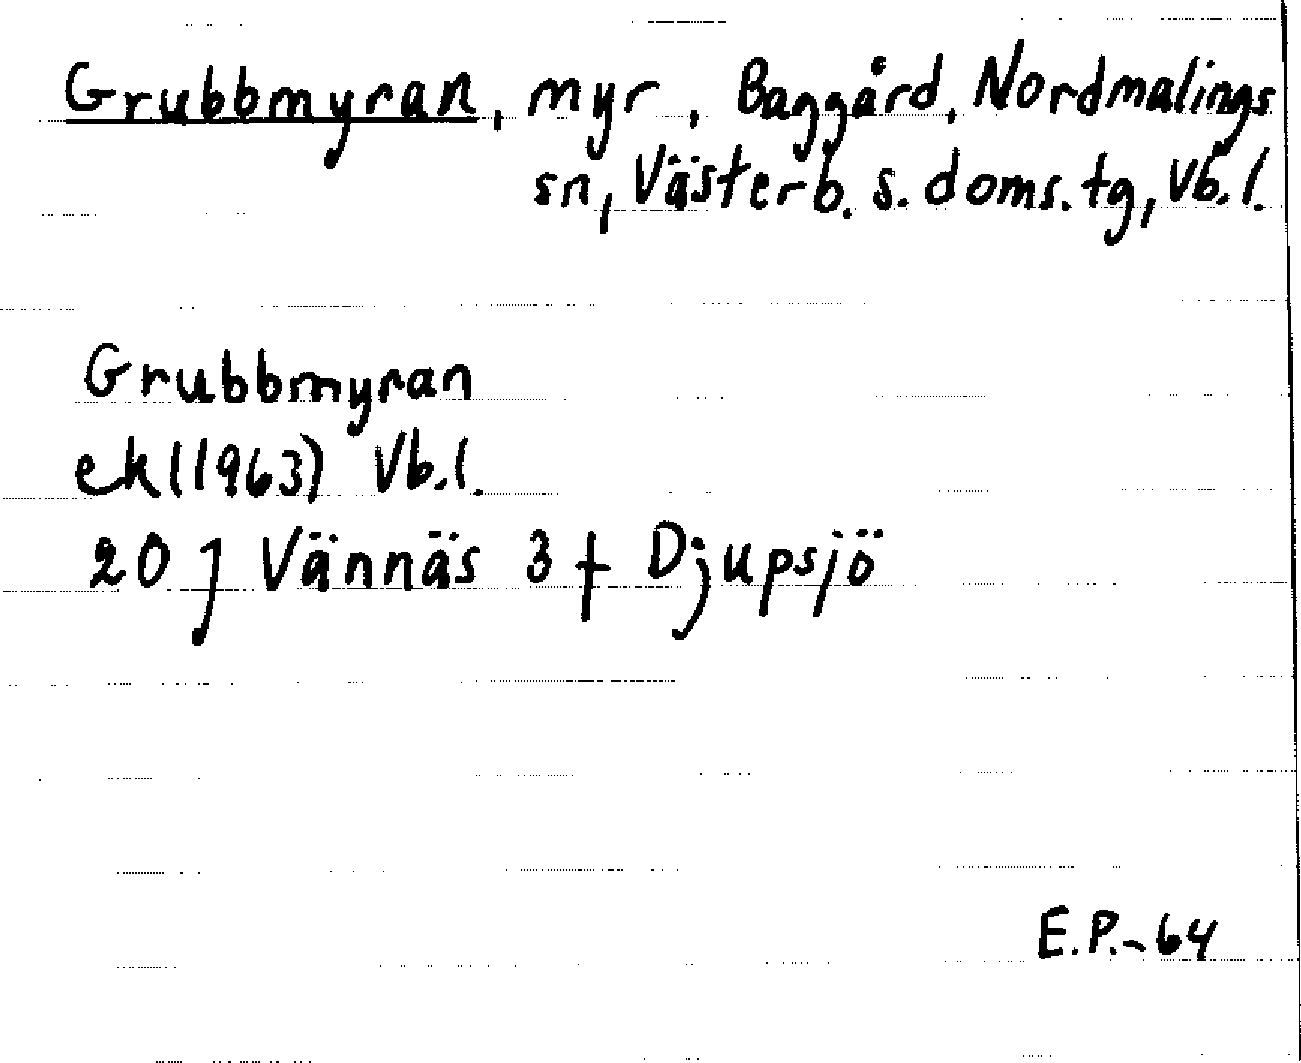 Grubbmyran, myr, Baggård, Nordmalings
sn, Västerb. s. doms. tg, Vb. l.
Grubbmyran
ek(1963) Vb. l.
20 J Vännäs 3 f Djupsjö
E.P.-64